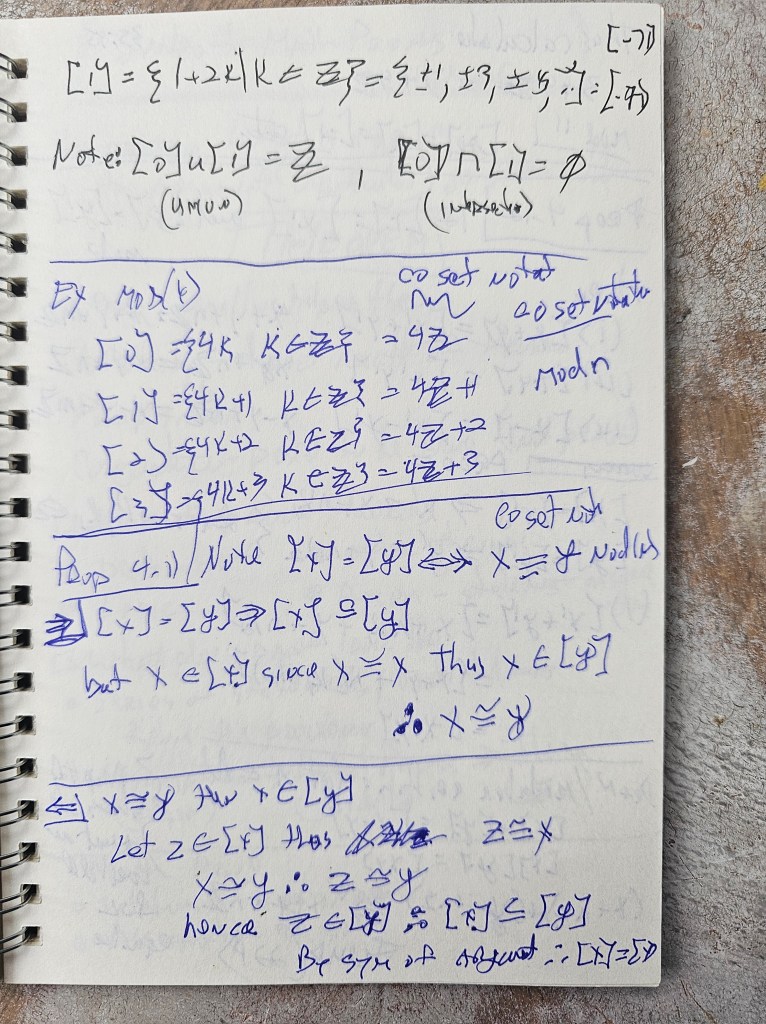 [-7]
[1] = {1+2k | k ∈ ℤ} = {±1, ±3, ±5, ...} = [-9]
Note: [0] ∪ [1] = ℤ , [0] ∩ [1] = ∅
(union) (intersection)
Ex Mod(4) coset notat
[0] = {4k k ∈ ℤ} = 4ℤ coset
[1] = {4k+1 k ∈ ℤ} = 4ℤ+1 mod n
[2] = {4k+2 k ∈ ℤ} = 4ℤ+2
[3] = {4k+3 k ∈ ℤ} = 4ℤ+3
coset not
Prop 4.1) Note [x] = [y] ⟺ x ≅ y Mod(n)
⇒] [x] = [y] ⇒ [x] ⊆ [y]
but x ∈ [x] since x ≅ x thus x ∈ [y]
∴ x ≅ y
⇐] x ≅ y thus x ∈ [y]
Let z ∈ [x] thus z ≅ x
x ≅ y ∴ z ≅ y
hence z ∈ [y] ∴ [x] ⊆ [y]
By sym of ∴ [x] = [y]